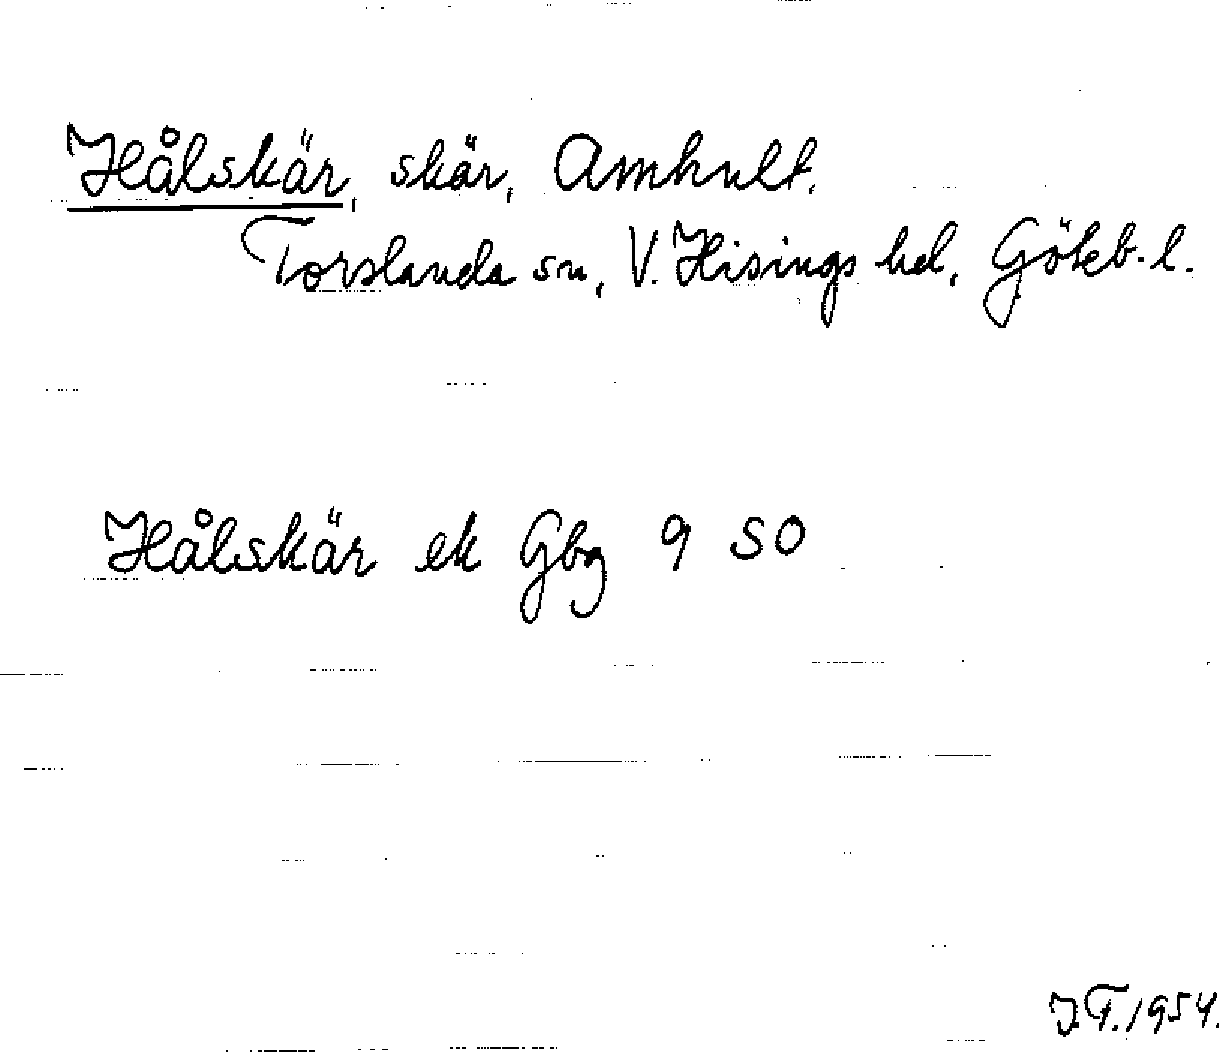 Hålskär, skär, Amhult.
Torslanda sn, V. Hisings hd, Göteb. l.
Hålskär ek Gbg 9 SO
J.T. 1954.